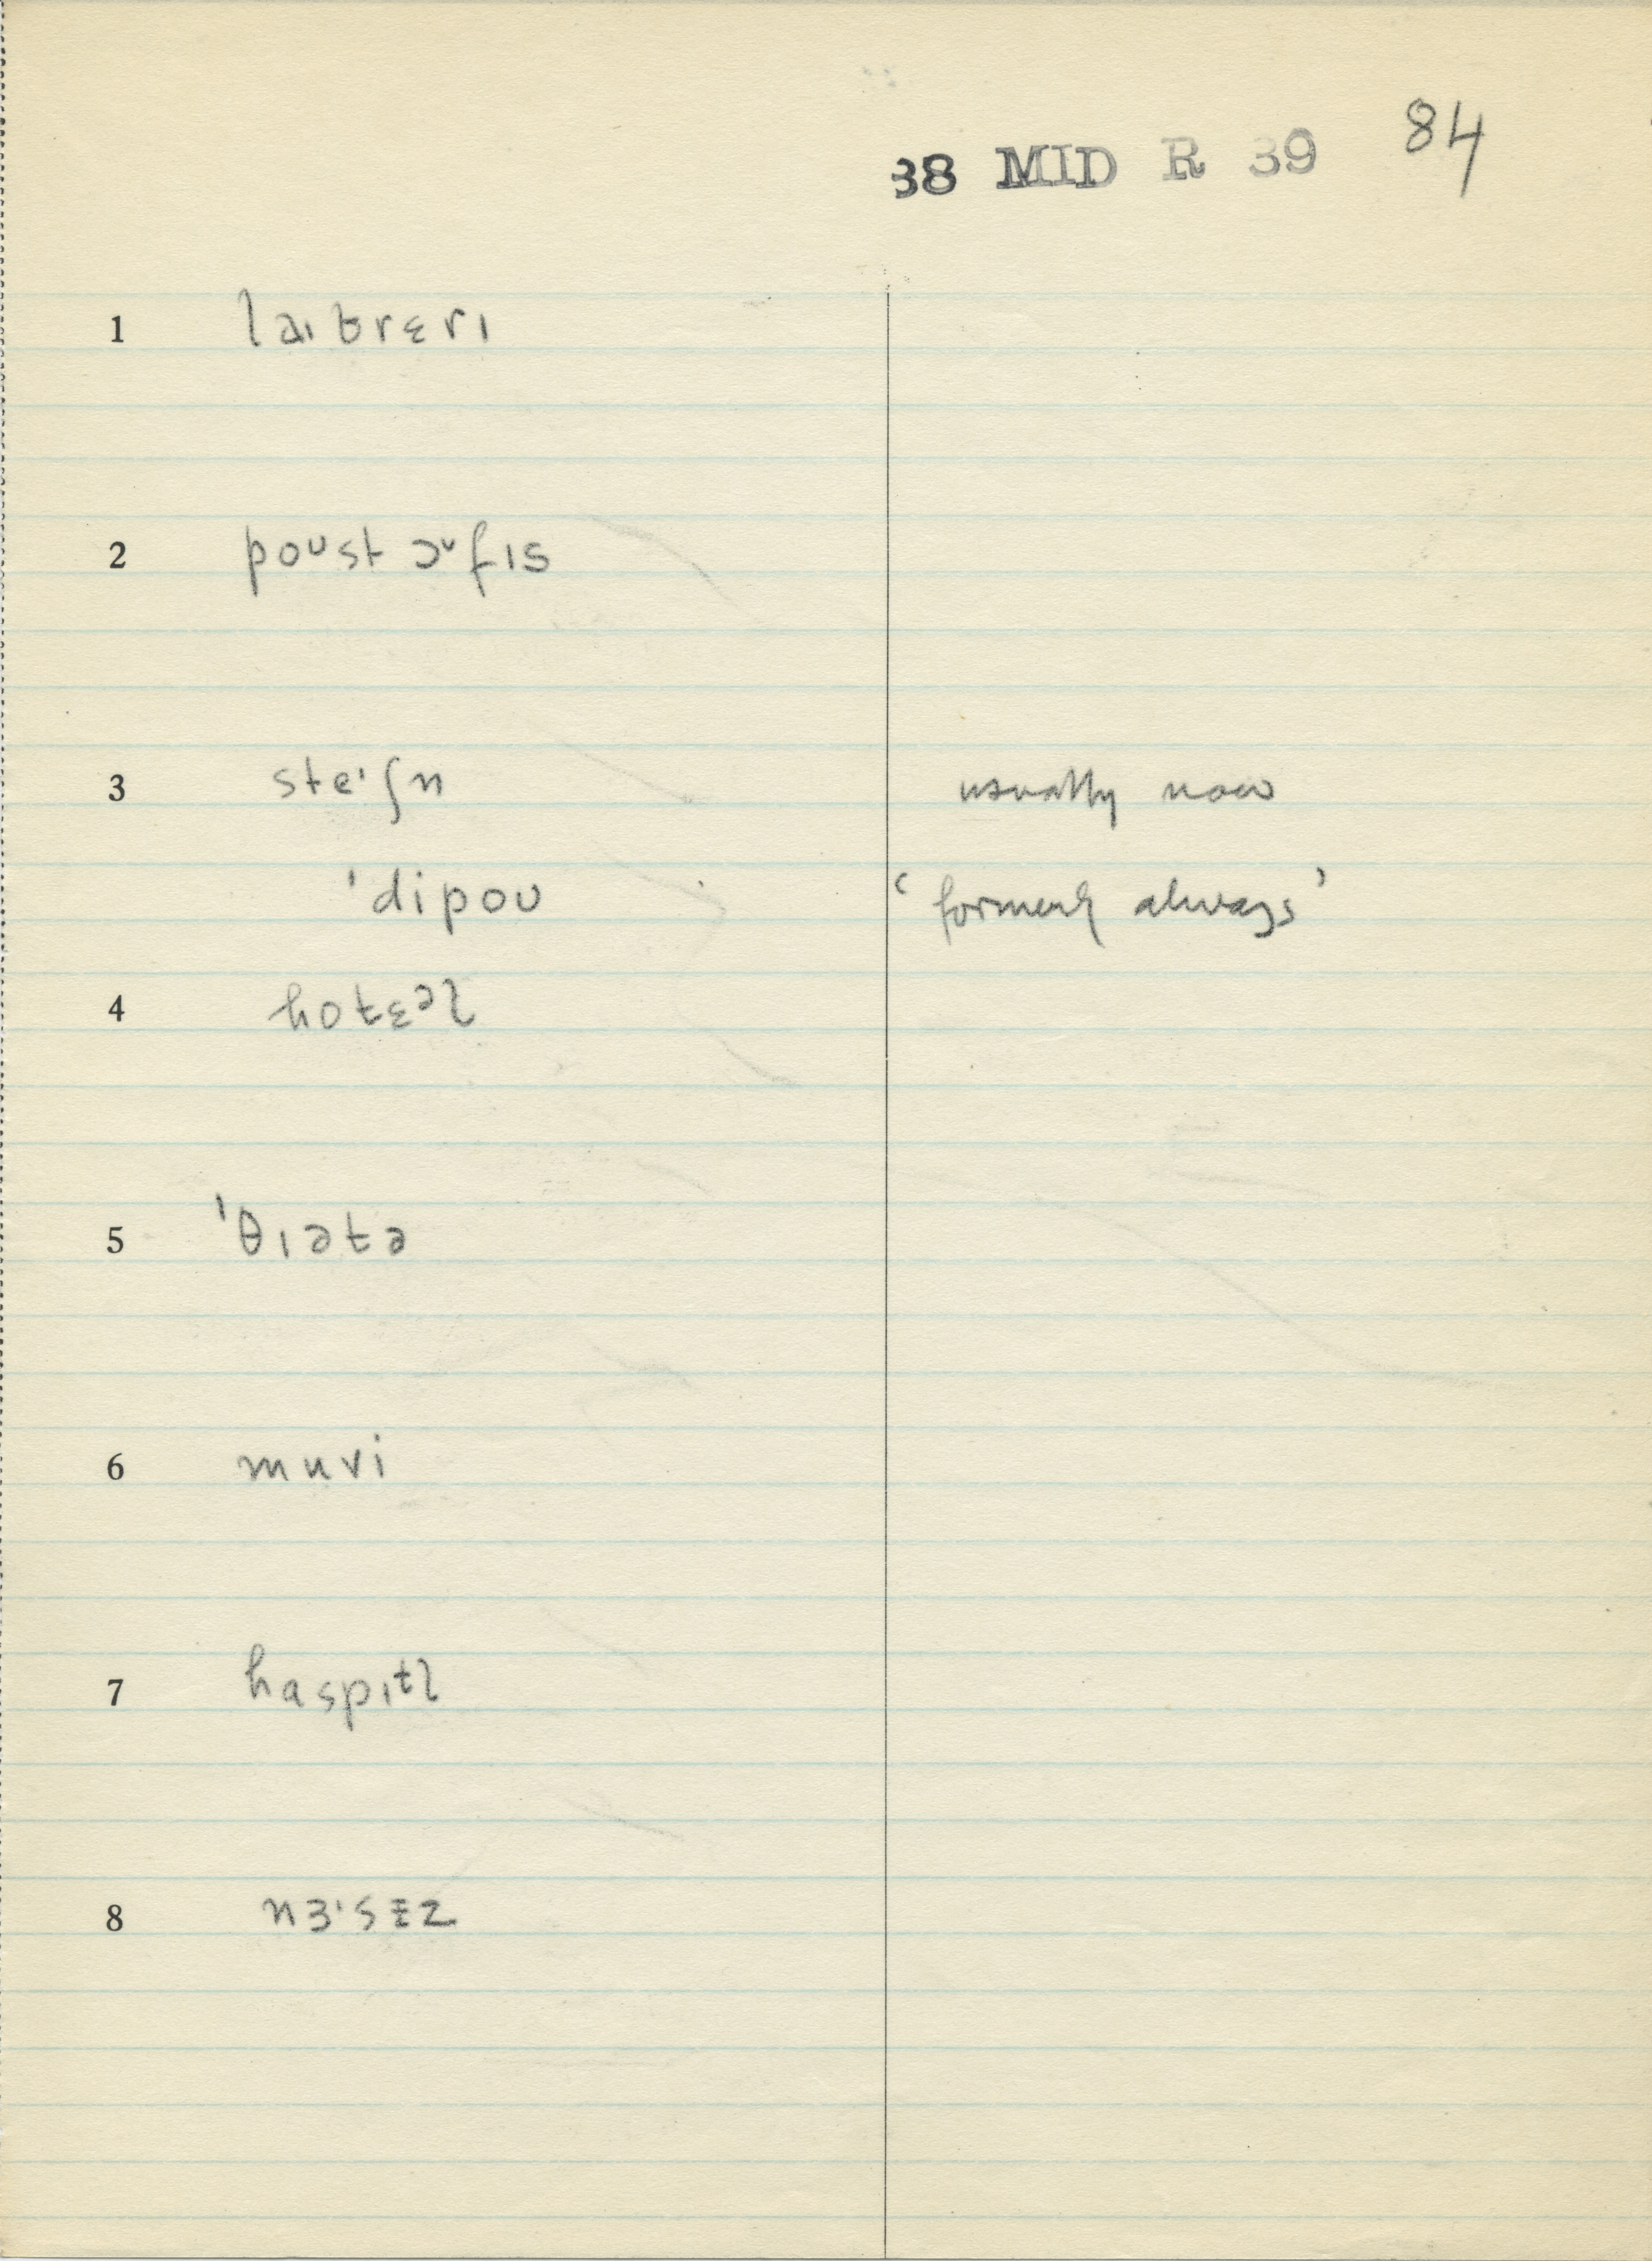 38 MID R 39 84
1 laɪbrɛrɪ
2 poᴜst ɔᶷfɪs
3 steᶦʃn usually now
ˈdipoᴜ ‘formerly always’
4 hotɛᵊl
5 ˈθɪətə
6 muvi
7 haspɪtl
8 nɜˑsɪz